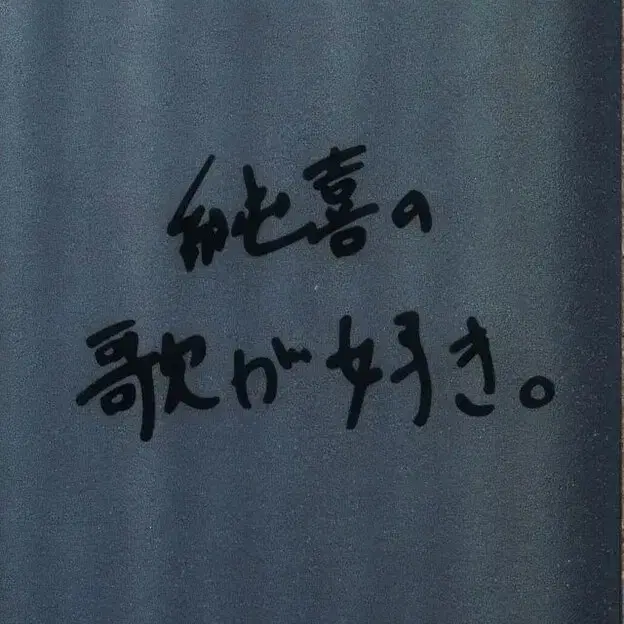 純喜の
歌が好き。